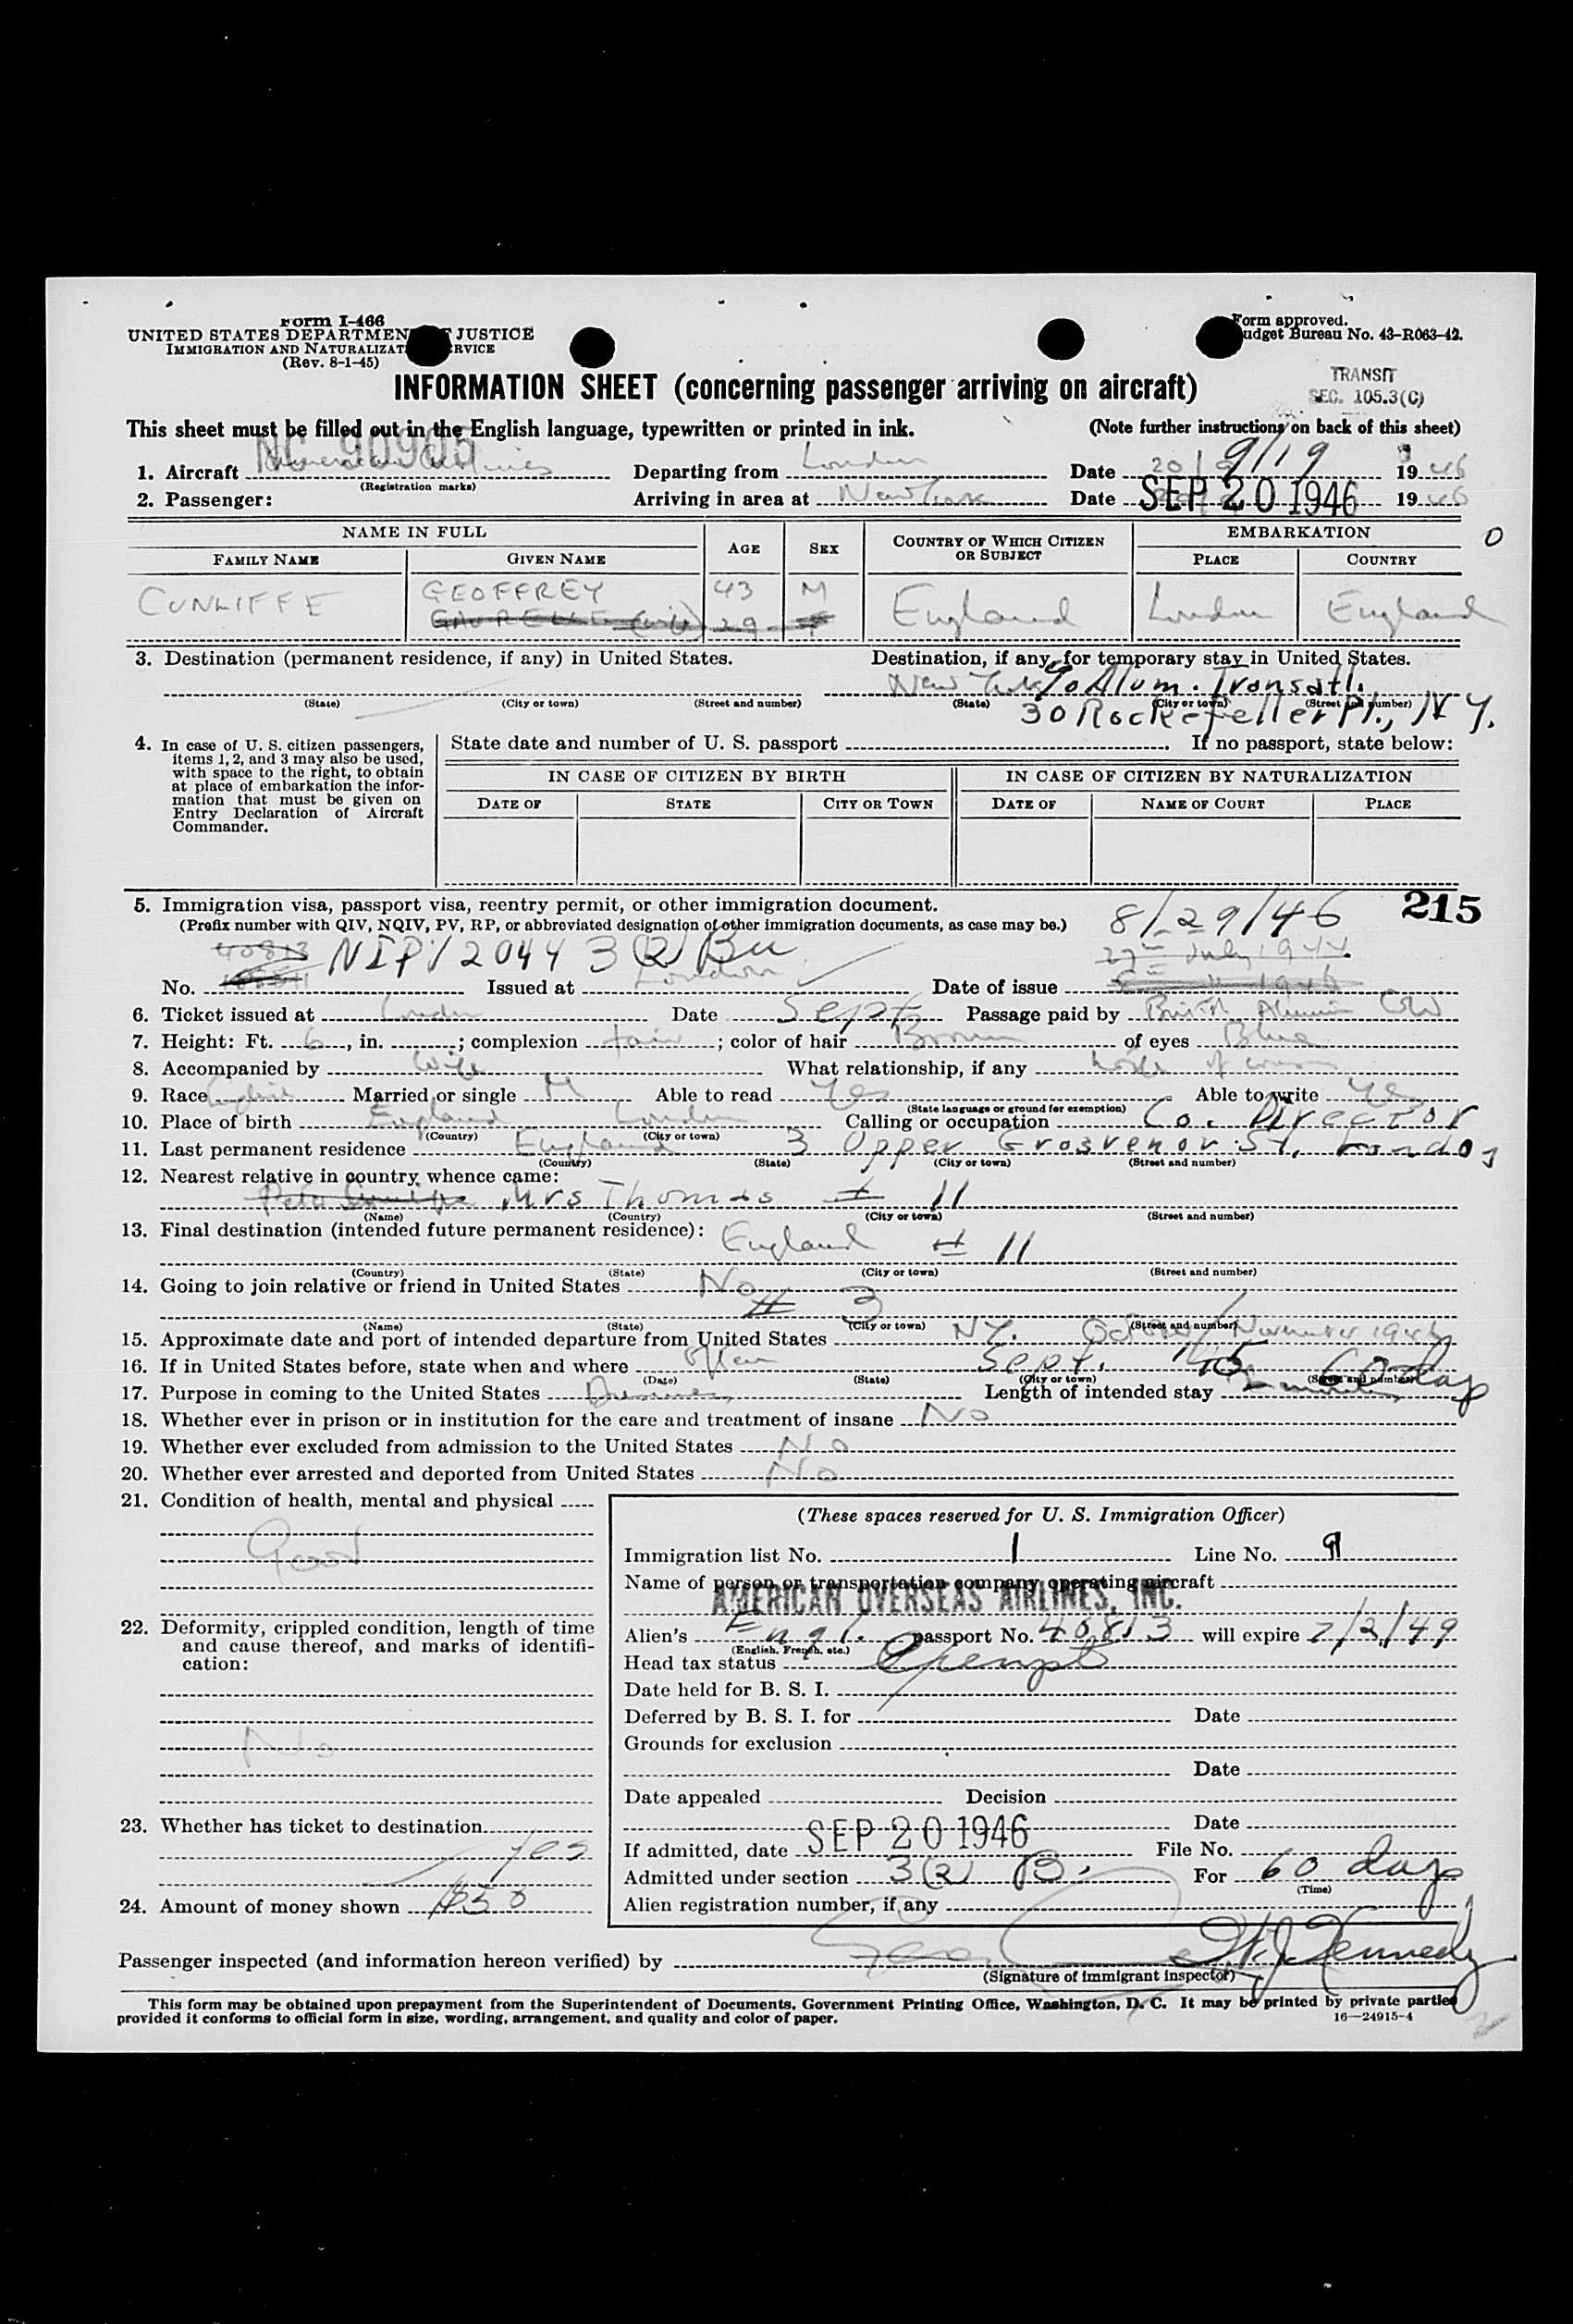 Form I-466
UNITED STATES DEPARTMENT JUSTICE
IMMIGRATION AND NATURALIZAT RVICE
(Rev. 8-1-45)
Form approved.
udget Bureau No. 43-R063-42.
INFORMATION SHEET (concerning passenger arriving on aircraft)
TRANSIT
SEC. 105.3(C)
This sheet must be filled out in the English language, typewritten or printed in ink.
(Note further instructions on back of this sheet)
NC 90905
1. Aircraft American Airlines Departing from London Date 20/9 9/19 1946
(Registration marks)
2. Passenger: Arriving in area at New York Date SEP 20 1946 1946
NAME IN FULL AGE SEX COUNTRY OF WHICH CITIZEN OR SUBJECT EMBARKATION
FAMILY NAME GIVEN NAME PLACE COUNTRY
O
CUNLIFFE GEOFFREY 43 M England London England
(wife) 29 F
3. Destination (permanent residence, if any) in United States. Destination, if any, for temporary stay in United States.
New York % Alum. Transatl.
(State) (City or town) (Street and number) (State) (City or town) (Street and number)
30 Rockefeller Pl., N.Y.
4. In case of U. S. citizen passengers, items 1, 2, and 3 may also be used, with space to the right, to obtain at place of embarkation the information that must be given on Entry Declaration of Aircraft Commander.
State date and number of U. S. passport If no passport, state below:
IN CASE OF CITIZEN BY BIRTH IN CASE OF CITIZEN BY NATURALIZATION
DATE OF STATE CITY OR TOWN DATE OF NAME OF COURT PLACE
5. Immigration visa, passport visa, reentry permit, or other immigration document. 215
(Prefix number with QIV, NQIV, PV, RP, or abbreviated designation of other immigration documents, as case may be.) 8/29/46
40813 NIPV 2044 3(2) Bu 27th July 1944
No. Issued at London Date of issue 1946
6. Ticket issued at London Date Sept Passage paid by British Aluminium Co
7. Height: Ft. 6, in. ; complexion fair ; color of hair Brown of eyes Blue
8. Accompanied by Wife What relationship, if any
9. Race English Married or single M Able to read Yes Able to write Yes
(State language or ground for exemption)
10. Place of birth England London Calling or occupation Co. Director
(Country) (City or town)
11. Last permanent residence England 3 Upper Grosvenor St, London
(Country) (State) (City or town) (Street and number)
12. Nearest relative in country whence came:
Mrs Thomas # 11
(Name) (Country) (City or town) (Street and number)
13. Final destination (intended future permanent residence): England # 11
(Country) (State) (City or town) (Street and number)
14. Going to join relative or friend in United States No
# 3
(Name) (State) (City or town) (Street and number)
15. Approximate date and port of intended departure from United States NY. October/November 1946
16. If in United States before, state when and where Often Sept. '45
(Date) (State) (City or town) (Street and number)
17. Purpose in coming to the United States Business Length of intended stay 2 months 60 days
18. Whether ever in prison or in institution for the care and treatment of insane No
19. Whether ever excluded from admission to the United States No
20. Whether ever arrested and deported from United States No
21. Condition of health, mental and physical
Good
22. Deformity, crippled condition, length of time and cause thereof, and marks of identification:
No
23. Whether has ticket to destination
Yes
24. Amount of money shown $50
(These spaces reserved for U. S. Immigration Officer)
Immigration list No. 1 Line No. 9
Name of person or transportation company operating aircraft
AMERICAN OVERSEAS AIRLINES, INC.
Alien's Engl. passport No. 40813 will expire 7/2/49
(English, French, etc.)
Head tax status Exempt
Date held for B. S. I.
Deferred by B. S. I. for Date
Grounds for exclusion
Date
Date appealed Decision
Date
If admitted, date SEP 20 1946 File No.
Admitted under section 3(2) B. For 60 days
(Time)
Alien registration number, if any
Passenger inspected (and information hereon verified) by Kennedy
(Signature of immigrant inspector)
This form may be obtained upon prepayment from the Superintendent of Documents, Government Printing Office, Washington, D. C. It may be printed by private parties
provided it conforms to official form in size, wording, arrangement, and quality and color of paper. 16—24915-4